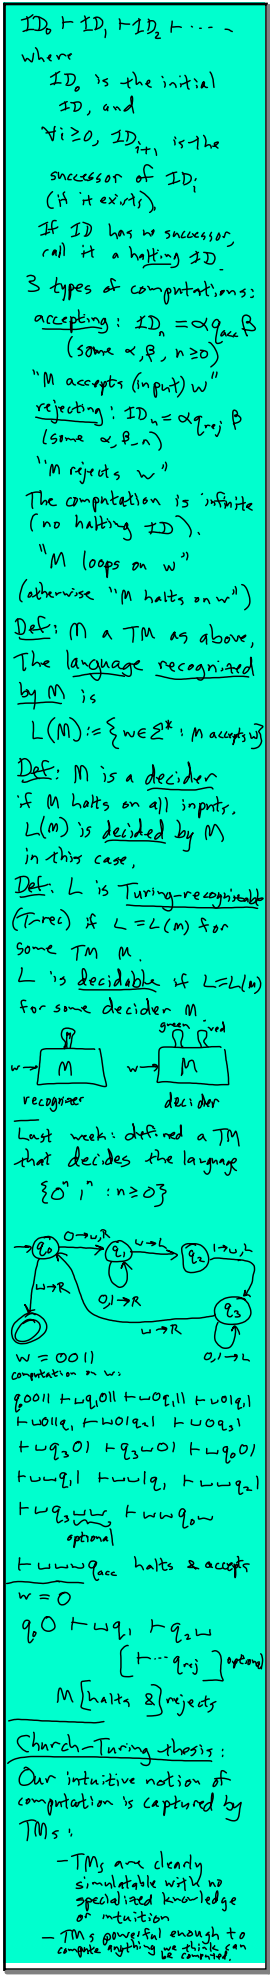 ID₀ ⊢ ID₁ ⊢ ID₂ ⊢ ....
where
ID₀ is the initial
ID, and
∀i≥0, ID_{i+1} is the
successor of ID_i
(if it exists).
If ID has no successor,
call it a halting ID.
3 types of computations:
accepting: ID_n = αq_acc β
(some α, β, n≥0)
"M accepts (input) w"
rejecting: ID_n = αq_rej β
(some α, β, n)
"M rejects w"
The computation is infinite
(no halting ID).
"M loops on w"
(otherwise "M halts on w")
Def: M a TM as above,
The language recognized
by M is
L(M) := {w∈Σ* : M accepts w}
Def: M is a decider
if M halts on all inputs.
L(M) is decided by M
in this case.
Def: L is Turing-recognizable
(T-rec) if L = L(M) for
some TM M.
L is decidable if L=L(M)
for some decider M.
green red
w→ M w→ M
recognizer decider
Last week: defined a TM
that decides the language
{0ⁿ1ⁿ : n≥0}
q₀ 0→⊔,R q₁ ⊔→L q₂ 1→⊔,L
⊔→R 0,1→R q₃
⊔→R 0,1→L
w = 0011
computation on w:
q₀0011 ⊢ ⊔q₁011 ⊢ ⊔0q₁11 ⊢ ⊔01q₁1
⊢ ⊔011q₁ ⊢ ⊔01q₂1 ⊢ ⊔0q₃1
⊢ ⊔q₃01 ⊢ q₃⊔01 ⊢ ⊔q₀01
⊢ ⊔⊔q₁1 ⊢ ⊔⊔1q₁ ⊢ ⊔⊔q₂1
⊢ ⊔q₃⊔⊔ ⊢ ⊔⊔q₀⊔
optional
⊢ ⊔⊔⊔q_acc halts & accepts
w = 0
q₀0 ⊢ ⊔q₁ ⊢ q₂⊔
[⊢... q_rej] optional
M [halts &] rejects
Church-Turing thesis:
Our intuitive notion of
computation is captured by
TMs:
- TMs are clearly
simulatable with no
specialized knowledge
or intuition
- TMs powerful enough to
compute anything we think can
be computed.